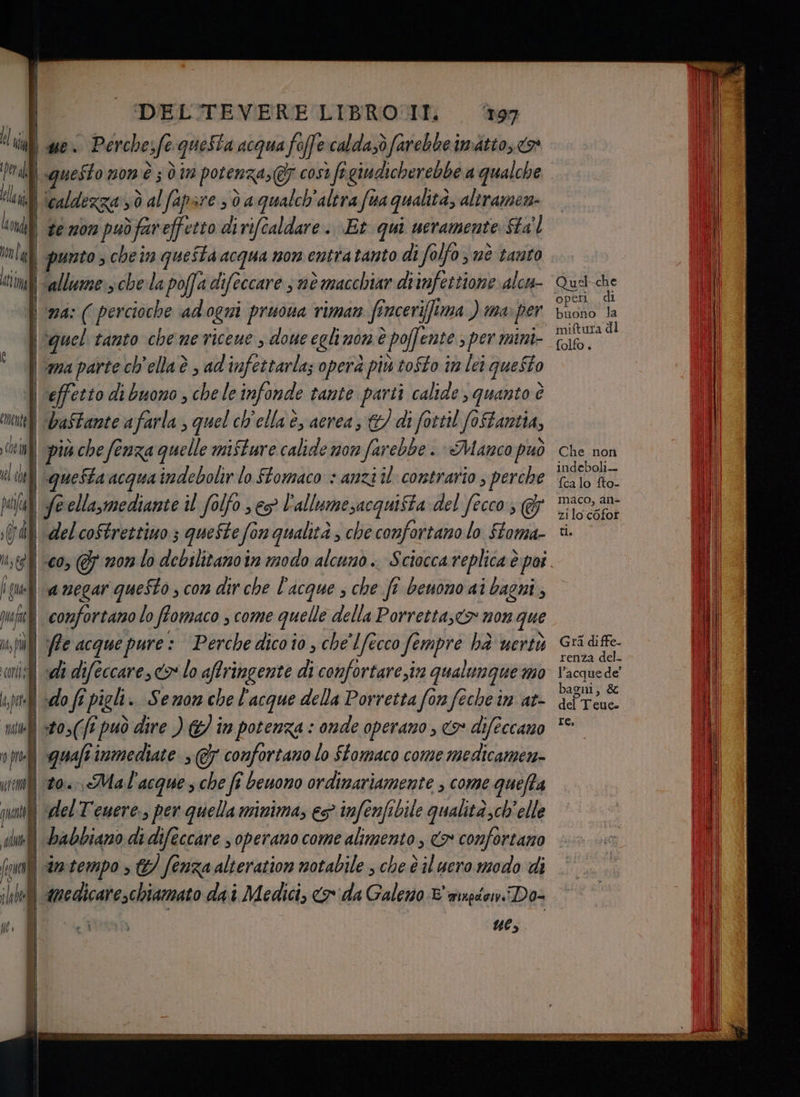 DEL TEVERE LIBRO II. 197
ue. Perche, se questa acqua fosse calda, ò sarebbe in atto, &
questo non è; ò in potenza, & cosi si giudicherebbe a qualche
caldezza, ò al sapore, ò a qualch'altra sua qualità, altramen-
te non può far effetto di riscaldare. Et qui ueramente sta'l
punto, che in questa acqua non entra tanto di solfo, nè tanto
allume, che la possa diseccare, nè macchiar di infettione alcu-
na: ( percioche ad ogni pruoua riman sincerissima ) ma per
quel tanto che ne riceue, doue egli non è possente, per mini-
ma parte ch'ella è, ad infettarla; opera più tosto in lei questo
effetto di buono, che le infonde tante parti calide, quanto è
bastante a farla, quel ch'ella è, aerea, & di sottil sostantia,
più che senza quelle misture calide non sarebbe. Manco può
questa acqua indebolir lo stomaco: anzi il contrario, perche
se ella, mediante il solfo, & l'allume, acquista del secco, &
del costrettiuo; queste son qualità, che confortano lo stoma-
co, & non lo debilitano in modo alcuno. Sciocca replica è poi
a negar questo, con dir che l'acque, che si beuono ai bagni,
confortano lo stomaco, come quelle della Porretta, & non que
ste acque pure: Perche dico io, che'l secco sempre hà uertù
di diseccare, & lo astringente di confortare, in qualunque mo
do si pigli. Se non che l'acque della Porretta son seche in at-
to, (si può dire ) & in potenza: onde operano, & diseccano
quasi immediate, & confortano lo stomaco come medicamen-
to. Ma l'acque, che si beuono ordinariamente, come questa
del Teuere, per quella minima, & insensibile qualità, ch'elle
habbiano di diseccare, operano come alimento, & confortano
in tempo, & senza alteration notabile, che è il uero modo di
medicare, chiamato da i Medici, & da Galeno Do-
ue,
Quel che
operi di
buono la
mistura dl
solfo.
Che non
indeboli-
sca lo sto-
maco, an-
zi lo cōfor
ti.
Grā diffe-
renza del-
l'acque de'
bagni, &
del Teue-
re.